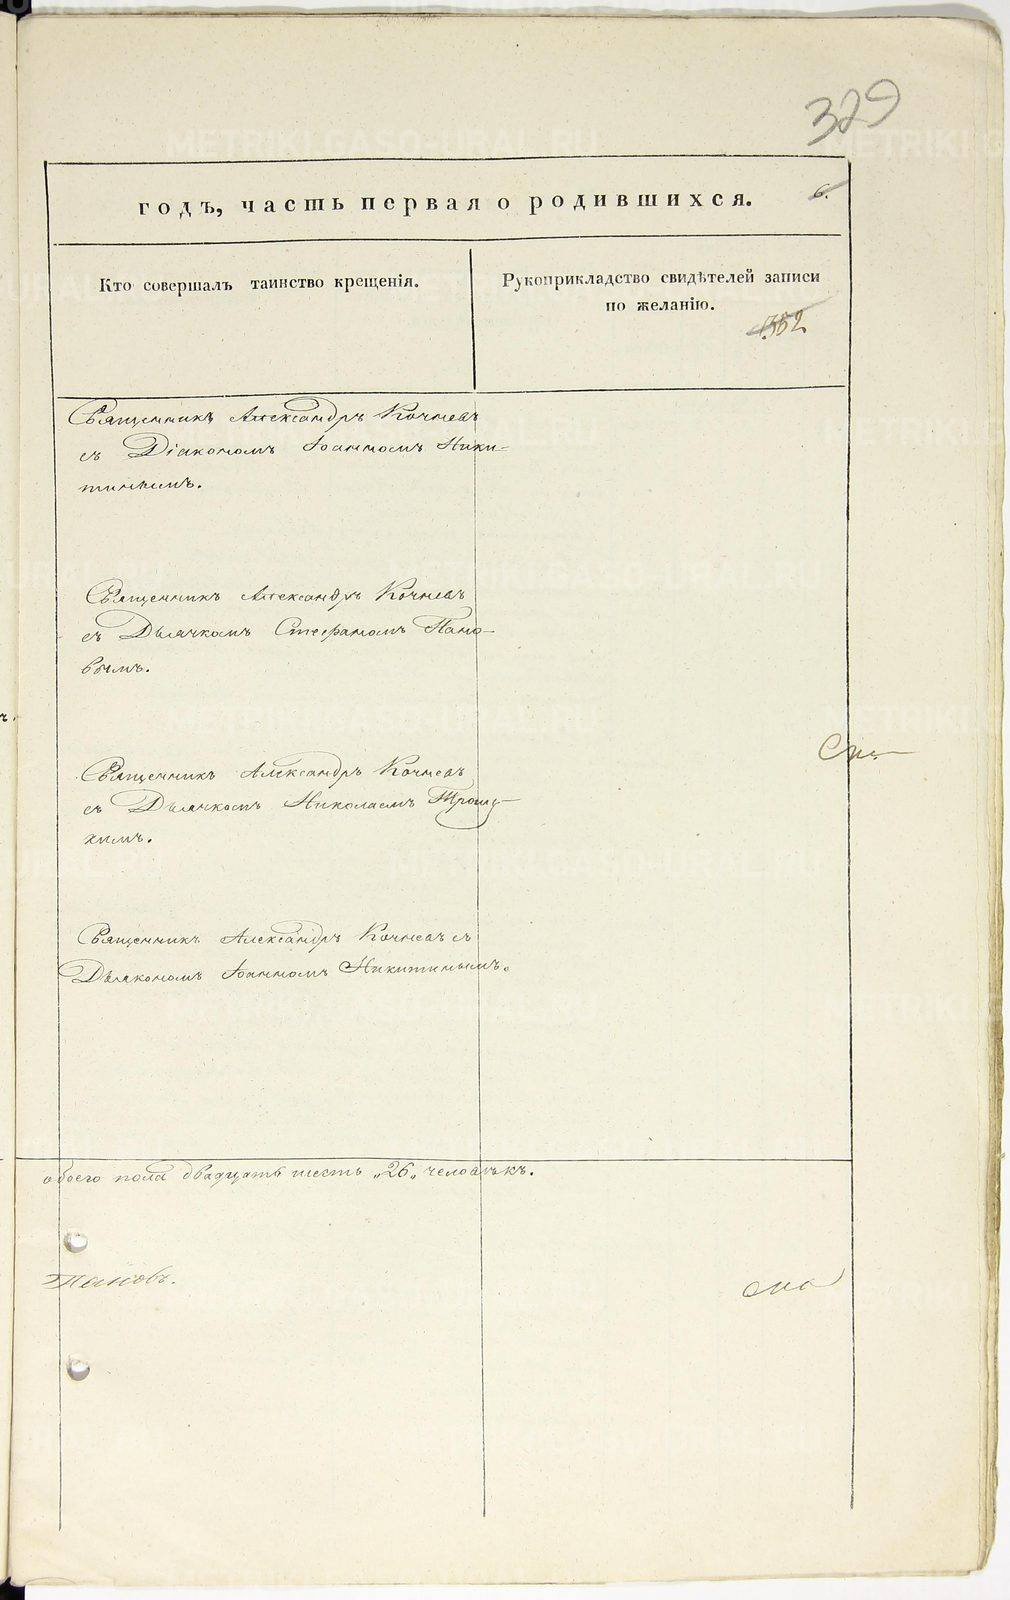 329
годъ, часть первая о родившихся.
6.
Кто совершалъ таинство крещенія.
Рукоприкладство свидѣтелей записи
по желанію.
352
Священникъ Александръ Кочневъ
съ Діакономъ Іоанномъ Ники-
тинымъ.
Священникъ Александръ Кочневъ
съ Дьячкомъ Стефаномъ Пано-
вымъ.
Священникъ Александръ Кочневъ
съ Дьячкомъ Николаемъ
Священникъ Александръ Кочневъ съ
Дьякономъ Іоанномъ Никитинымъ.
обоего пола двадцать шесть „26„ человѣкъ.
Пановъ.
METRIKI.GASO-URAL.RU